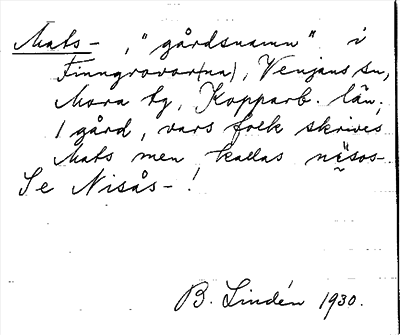 Mats- , "gårdsnamn" i
Finngrovor(na), Venjans sn,
Mora tg, Kopparb. län;
1 gård, vars folk skrives
Mats men kallas
Se Nisås- !
B. Lindén 1930.